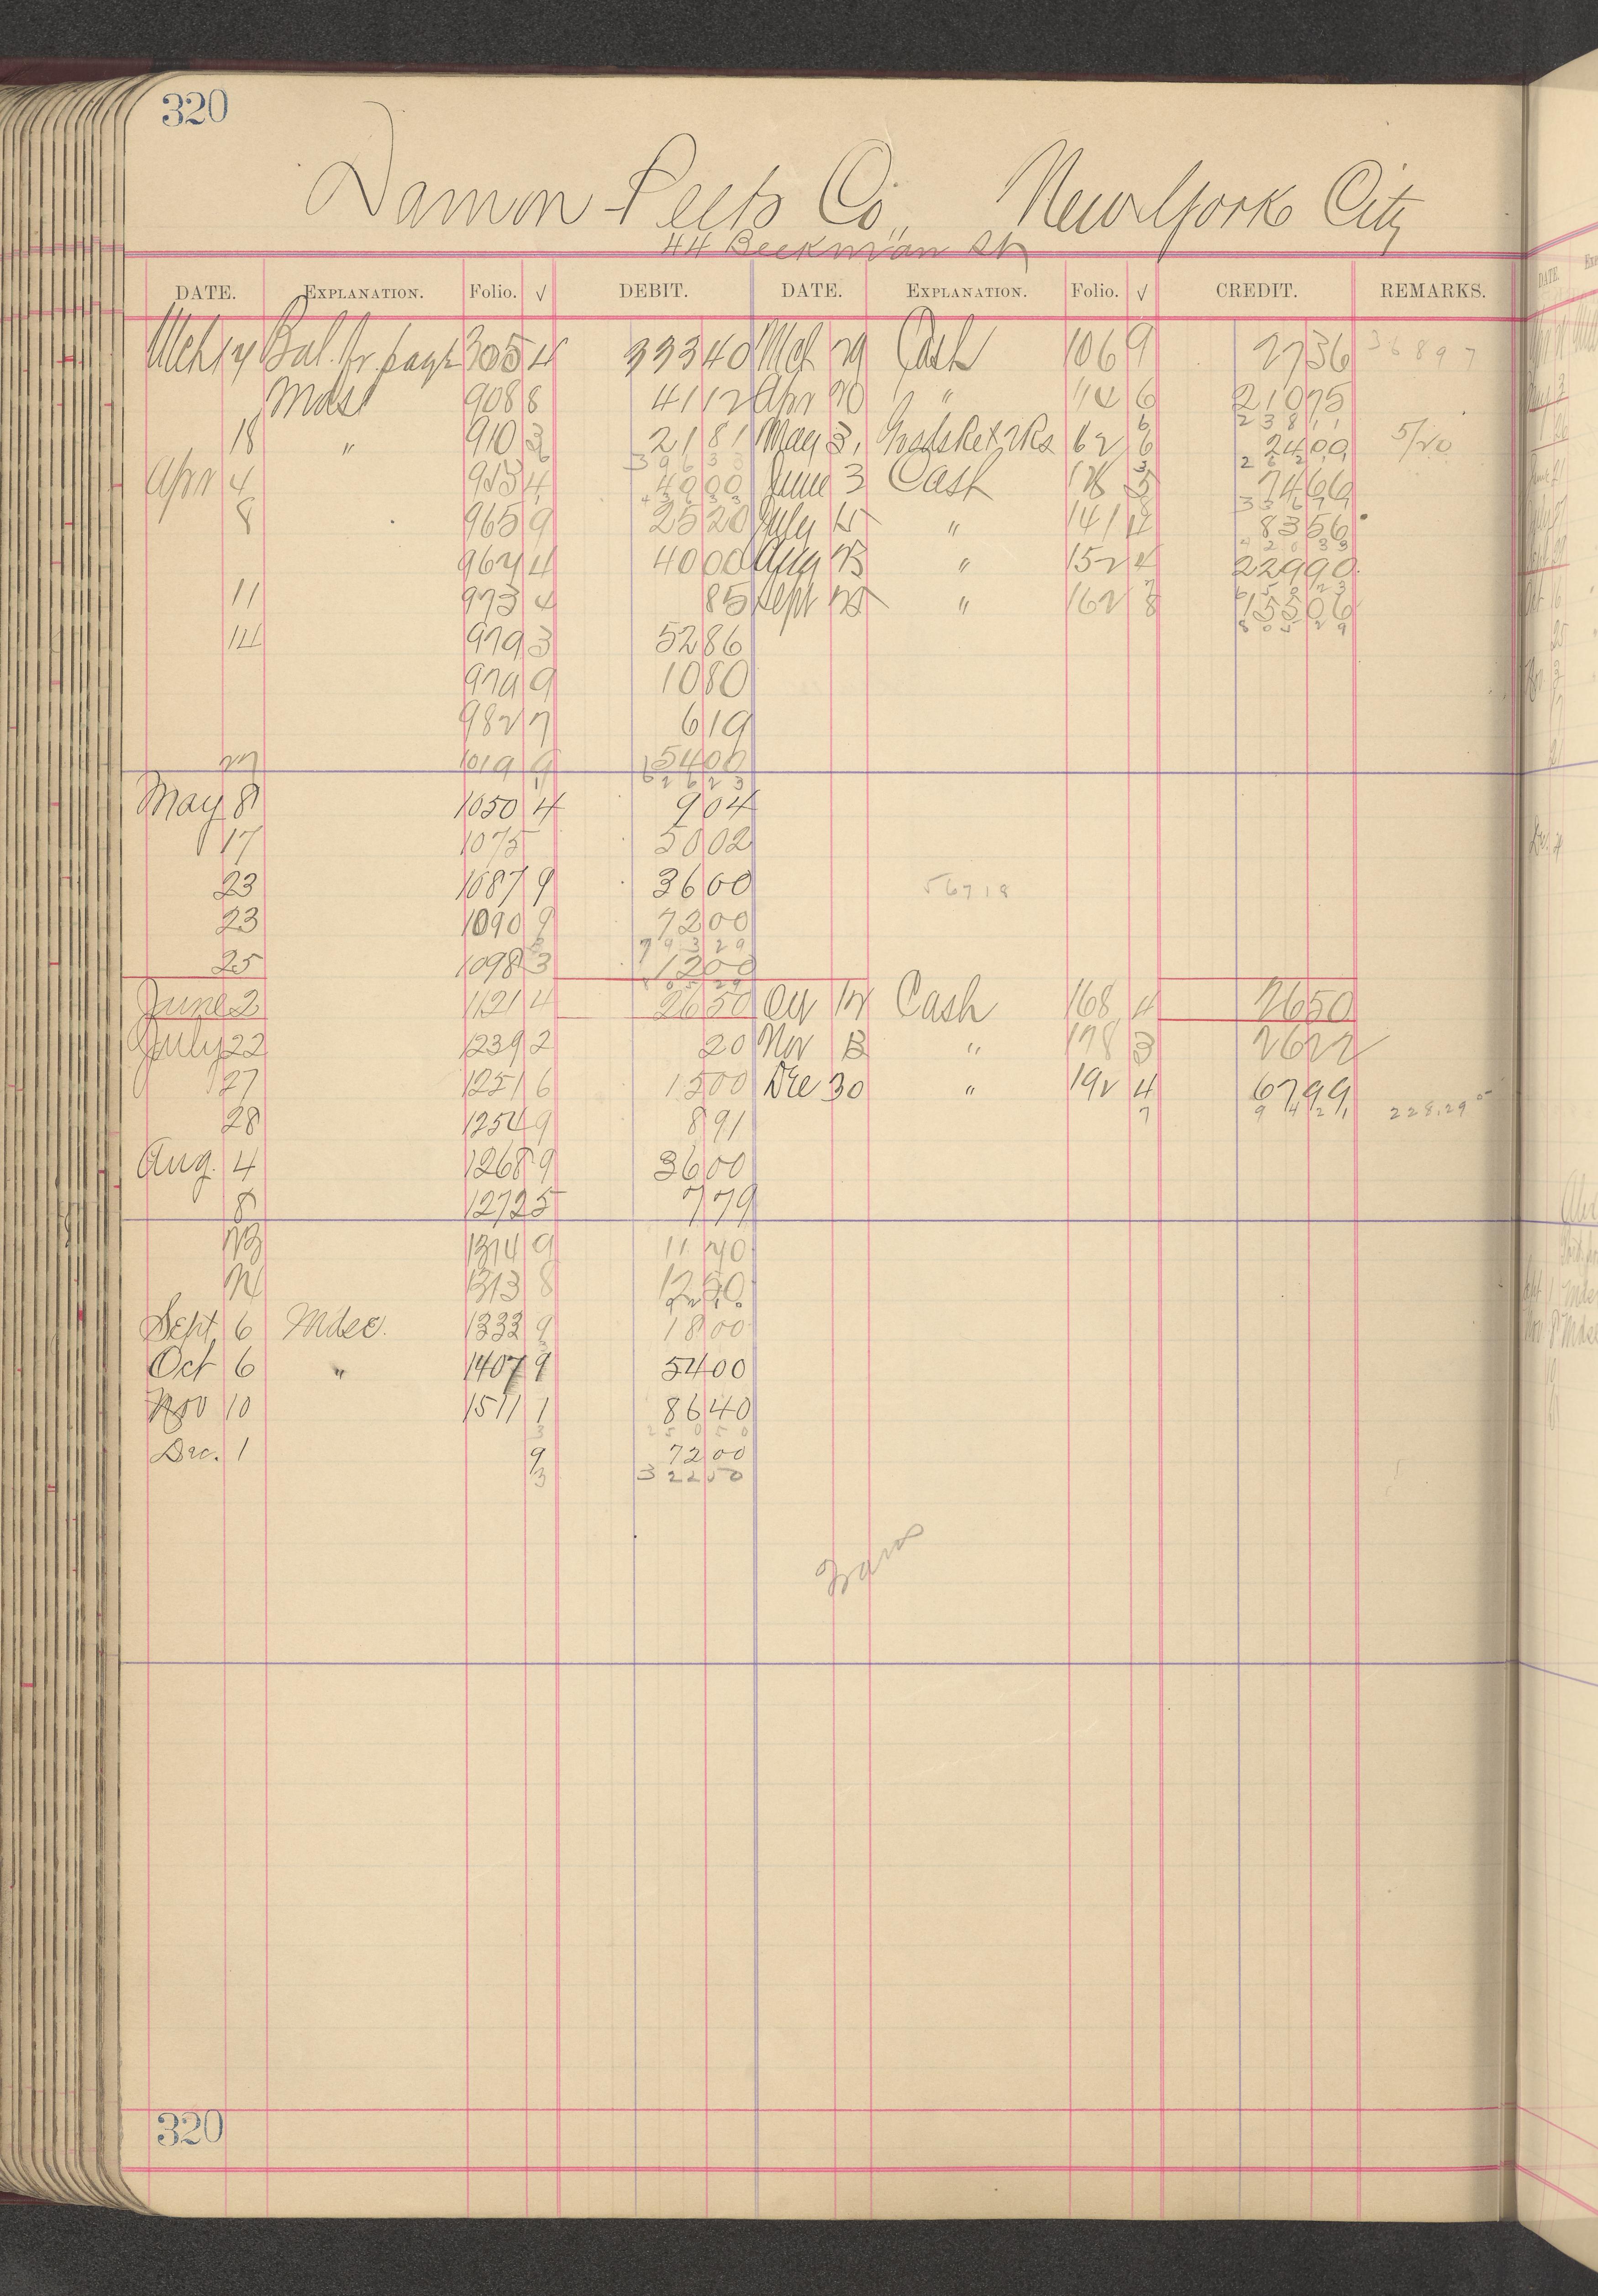 320
Damon Peets Co., New York City
44 Beekman St
DATE. EXPLANATION. Folio. √ DEBIT. DATE. EXPLANATION. Folio. √ CREDIT. REMARKS.
Mch 14 Bal. fr. page 305 4 333 40 Mch 29 Cash 106 9 27 36 36897
Mdse 908 8 41 12 Apr 20 " 114 6 210 75
238 11
18 " 910 3 21 81 May 3, 62 6 24 00 5/20
396 33 262 11
Apr 4 953 4 40 00 June 3 Cash 5 74 66
436 33 336 77
8 965 9 25 20 July 15 " 141 4 83 56
420 33
967 4 40 00 Aug 15 " 152 4 229 90
11 973 4 85 Sept 15 " 162 8 155 06
805 29
14 979 3 52 86
979 9 10 80
982 7 6 19
27 1019 9 54 00
626 23
May 8 1050 4 9 04
17 1075 50 02
23 1087 9 36 00 567 18
23 1090 9 72 00
793 29
25 1098 3 12 00
805 29
June 2 1121 4 26 50 Oct 14 Cash 168 4 26 50
July 22 1239 2 20 Nov 13 " 178 3 26 22
27 1251 6 15 00 Dec 30 " 192 4 67 99
94 21 228.29
28 1254 9 8 91
Aug. 4 1268 9 36 00
8 1272 5 7 79
23 1314 9 11 40
24 1313 8 12 80
Sept 6 Mdse. 1333 9 18 00
Oct 6 " 1407 9 54 00
Nov 10 1511 1 86 40
250 50
Dec. 1 9 72 00
322 50
320